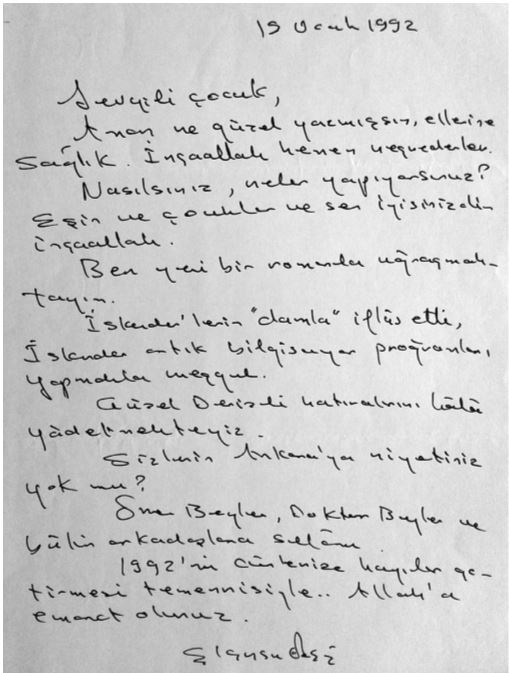 19 Ocak 1992
Sevgili çocuk,
Aman ne güzel yazmışsın, ellerine
sağlık. İnşaallah hemen neşrederler.
Nasılsınız, neler yapıyorsunuz?
Eşin ve çocuklar ve sen iyisinizdir
inşaallah.
Ben yeni bir romanla uğraşmak-
tayım.
İskender'lerin "damla" iflâs etti,
İskender artık bilgisayar proğramları
yapmakla meşgul.
Güzel Denizli hatıralarını hâlâ
yâdetmekteyiz.
Sizlerin Ankara'ya niyetiniz
yok mu?
Beyler, Doktor Beyler ve
bütün arkadaşlara selâm.
1992'nin cümlenize hayırlar ge-
tirmesi temennisiyle.. Allah'a
emanet olunuz.